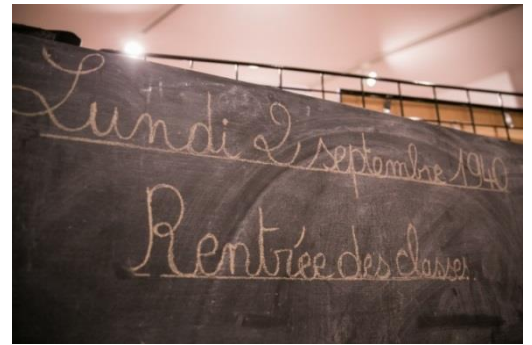 Lundi 2 septembre 1940
Rentrée des classes.